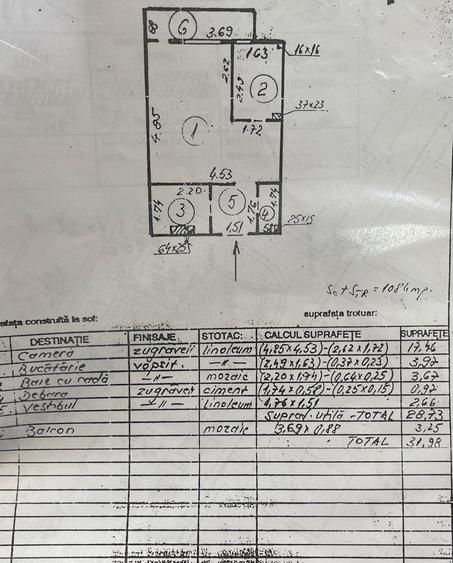 6
88
3.69
1.63
16x16
2.62
2.49
2
37x23
1.72
4.85
1
4.53
2.20
1.74
3
5
1.76
4
1.74
1.51
25x15
64x25
Sc + STR = 108,4 mp.
afața construită la sol:
suprafața trotuar:
DESTINAȚIE FINISAJE STOTAC: CALCUL SUPRAFEȚE SUPRAFEȚE
Cameră zugrăveli linoleum (4,85x4.53)-(2,62x1,72) 17,46
Bucătărie vopsit. -"- (2,49x1,63)-(0,37x0,23) 3,97
Baie cu radă -"- mozaic (2,20x1,74)-(0,64x0,25) 3,67
Debara zugrăveli ciment (1,74x0,58)-(0,25x0,15) 0,97
Vestibul -"- linoleum 1,76x1,51 2,66
Supraf. utilă - TOTAL 28,73
Balcon mozaic 3,69x0,88 3,25
TOTAL 31,98